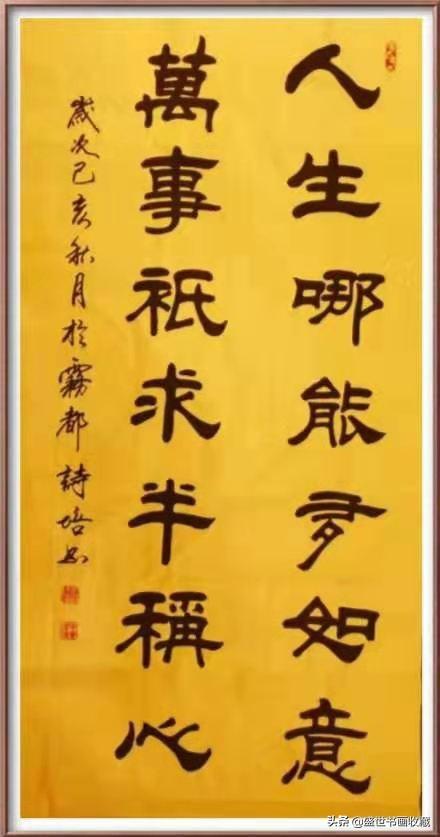 人生哪能多如意
萬事祇求半稱心
歲次己亥秋月於霧都詩培書
头条@盛世书画收藏